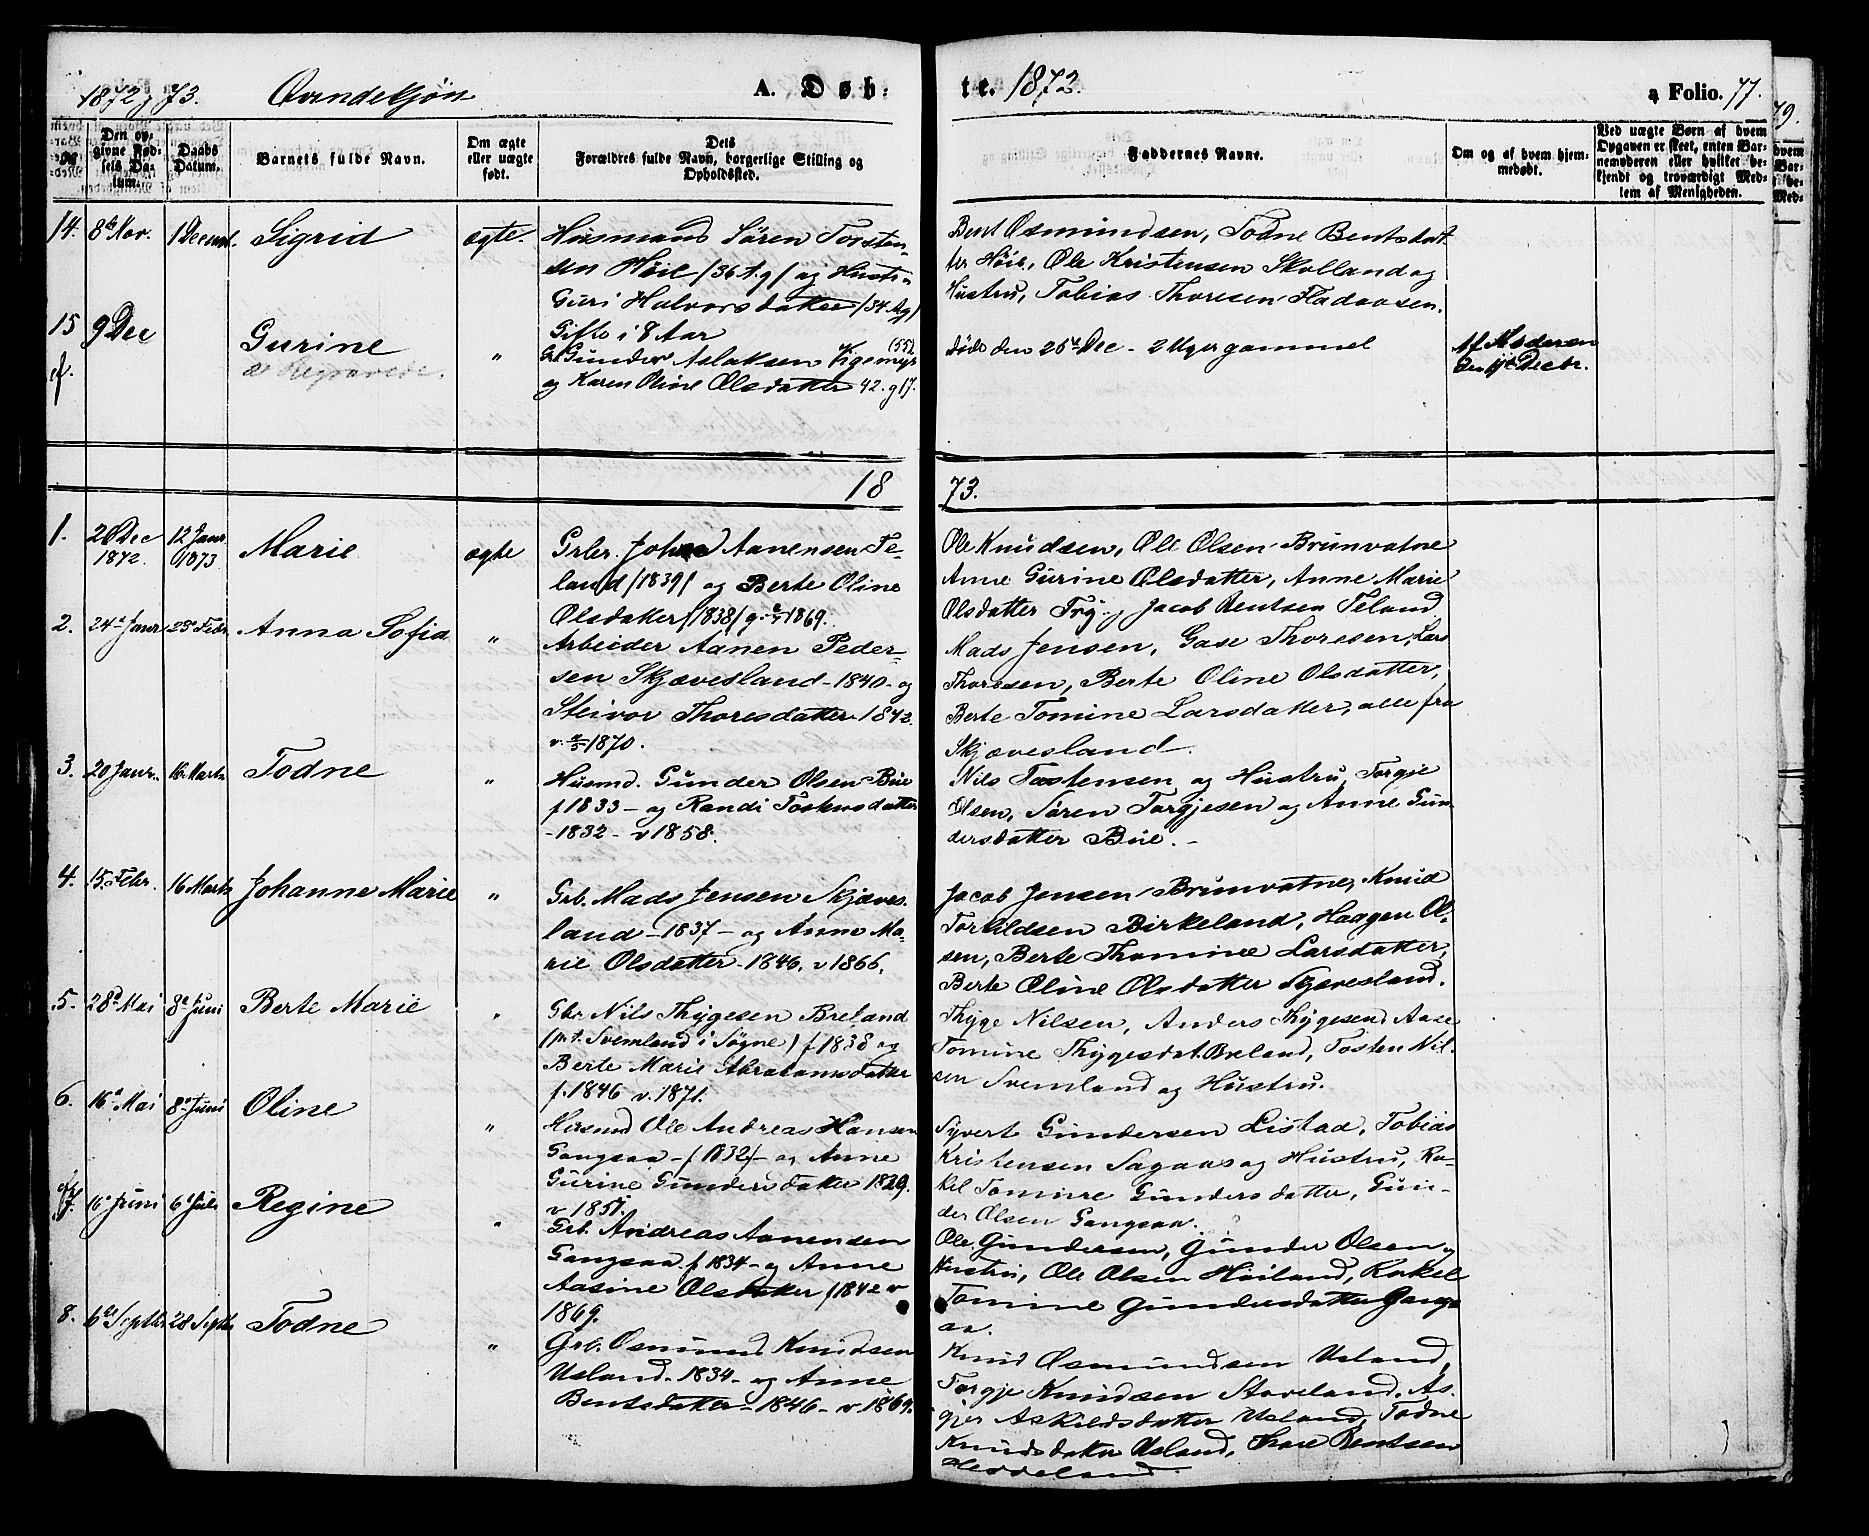 1872 og 73. Qvindekjøn A. Døb-
te. 1872. a Folio. 77.
No
Den opgivne Fødsels Datum.
Daabs Datum.
Barnets fulde Navn.
Om ægte eller uægte født.
Dets Forældres fulde Navn, borgerlige Stilling og Opholdssted.
Faddernes Navne.
Om og af hvem hjemmedøbt.
Ved uægte Børn af hvem Opgaven er skeet, enten Barnemoderen eller hvilket bekjendt og troværdigt Medlem af Menigheden.
14. 8de Nov. 1 Decemb. Sigrid ægte. Huusmand Søren Torsten-
sen Høie /36 A.g/ og Hustru
Guri Halvorsdatter /34 A.g/
Gifte i 8 Aar
Bent Osmundsen, Todne Bentsdat-
ter Høie, Ole Kristensen Skolland og
Hustru, Tobias Thoresen Fladaasen.
15 9 Dec Gurine " Gunder Aslaksen Vigemyr (55)
og Karen Oline Olsdatter 42. g 17.
døde den 26de Dec - 2 Uger gammel
Af Moderen
den 11te Decbr.
1873.
1. 20 Dec 1872. 12 Janr 1873 Marie ægte Grbr. Johan Aanensen Fe-
land /1839/ og Berte Oline
Olsdatter /1838/ g. 1869.
Ole Knudsen, Ole Olsen Brunvatne
Anne Gurine Olsdatter, Anne Marie
Olsdatter Try, Jacob Bentsen Feland
2. 24de Janr 23de Febr. Anna Sofia " Arbeider Aanen Peder-
sen Skjævesland - 1840 - og
Steivor Thoresdatter 1843.
v. 1870.
Mads Jensen, Gase Thoresen, Lars
Thoresen, Berte Oline Olsdatter,
Berte Tomine Larsdatter, alle fra
Skjævesland.
3. 20 Janr. 16 Marts Todne " Husmd. Gunder Olsen Bue
f 1833 - og Randi Tostensdatter
- 1832 - v 1858.
Nils Tostensen og Hustru, Torgje
Olsen, Søren Torgjesen og Anne Gun-
dersdatter Bue. -
4. 15. Febr. 16 Marts Johanne Marie " Grb. Mads Jensen Skjæves-
land - 1837 - og Anne Ma-
rie Olsdatter - 1846. v 1866.
Jacob Jensen Brunvatne, Knud
Torkildsen Birkeland, Haagen Ol-
sen, Berte Thomine Larsdatter,
Berte Oline Olsdatter Skjævesland.
5. 28de Mai 8de Juni Berte Marie " Gbr Nils Thygesen Breland
(p.t. Svemland i Søgne) f 1838 og
Berte Marie Abrahamsdatter
f. 1846 v. 1871.
Thyge Nilsen, Anders Thygesen, Aase
Tomine Thygesdat. Breland, Tosten Nil-
sen Svemland og Hustru.
6. 16de Mai 8de Juni Oline " Husmd Ole Andreas Hansen
Gangsaa - f 1832 - og Anne
Gurine Gundersdatter 1829.
v 1851.
Syvert Gundersen Listad, Tobias
Kristensen Sagaas og Hustru, Ra-
kel Tomine Gundersdatter, Gun-
der Olsen Gangsaa.
7. 16de Juni 6te Juli Regine " Grb. Andreas Aanensen
Gangsaa f 1834 - og Anne
Aasine Olsdatter f 1842 v
1869.
Ole Gundersen, Gunder Olsen og
Hustru, Ole Olsen Høiland, Rakel
Tomine Gundersdatter Gangs-
aa.
8. 6te Septbr. 28 Septbr. Todne " Grb. Osmund Knudsen
Usland. 1834 - og Anne
Bentsdatter - 1846 - v 1869.
Knud Osmundsen Usland,
Torgje Knudsen Stoveland, As-
gjer Askildsdatter Usland, Todne
Knudsdatter Usland, Tore Bentsen